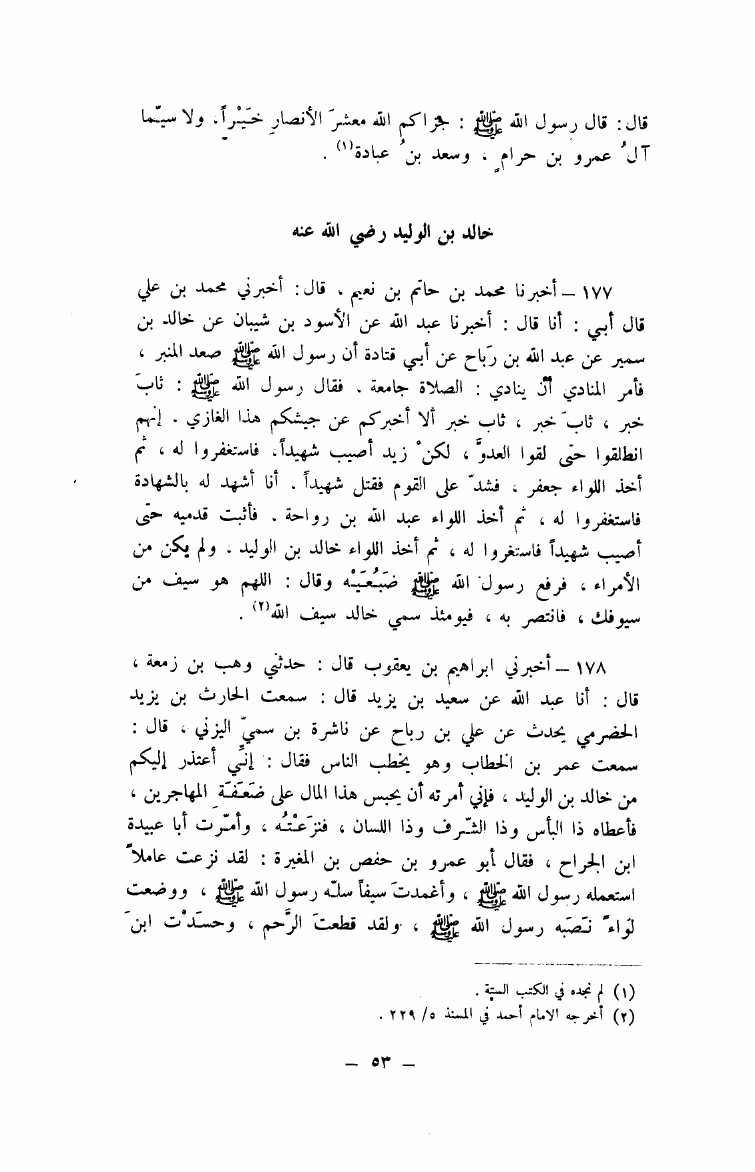 قال: قال رسول الله ﷺ : جزاكم الله معشرَ الأنصارِ خَيْراً. ولا سيّما
آلُ عمرو بن حرامٍ ، وسعد بنُ عبادة(١) .
خالد بن الوليد رضي الله عنه
١٧٧ – أخبرنا محمد بن حاتم بن نعيم . قال: أخبرني محمد بن علي
قال أبي : أنا قال : أخبرنا عبد الله عن الأسود بن شيبان عن خالد بن
سمير عن عبد الله بن رَباح عن أبي قتادة أن رسول الله ﷺ صعد المنبر ،
فأمر المنادي أنْ ينادي : الصلاة جامعة . فقال رسول الله ﷺ : ثابَ
خبر ، ثابَ خبر ، ثاب خبر ألا أخبركم عن جيشكم هذا الغازي . إنهم
انطلقوا حتى لقوا العدوَّ ، لكنْ زيد أصيب شهيداً. فاستغفروا له ، ثم
أخذ اللواء جعفر ، فشدّ على القوم فقتل شهيداً . أنا أشهد له بالشهادة
فاستغفروا له ، ثم أخذ اللواء عبد الله بن رواحة . فأثبت قدميه حتى
أصيب شهيداً فاستغروا له ، ثم أخذ اللواء خالد بن الوليد . ولم يكن من
الأمراء ، فرفع رسول الله ﷺ ضَبُعَيْه وقال : اللهم هو سيف من
سيوفك ، فانتصر به ، فيومئذ سمي خالد سيف الله(٢) .
١٧٨ – أخبرني ابراهيم بن يعقوب قال : حدثني وهب بن زمعة ،
قال : أنا عبد الله عن سعيد بن يزيد قال : سمعت الحارث بن يزيد
الحضرمي يحدث عن علي بن رباح عن ناشرة بن سميّ اليزني ، قال :
سمعت عمر بن الخطاب وهو يخطب الناس فقال : إنَّي أعتذر إليكم
من خالد بن الوليد ، فإني أمرته أن يحبس هذا المال على ضَعَفَةِ المهاجرين ،
فأعطاه ذا البأس وذا الشّرف وذا اللسان ، فنزَعْتُه ، وأمّرت أبا عبيدة
ابن الجراح ، فقال أبو عمرو بن حفص بن المغيرة : لقد نزعت عاملاً
استعمله رسول الله ﷺ ، وأغمدتَ سيفاً سلّه رسول الله ﷺ ، ووضعت
لواءً نَصَبَه رسول الله ﷺ ، ولقد قطعتَ الرَّحم ، وحسَدْت ابنَ
(١) لم نجده في الكتب الستة .
(٢) أخرجه الامام أحمد في المسند ٥/ ٢٢٩ .
– ٥٣ –